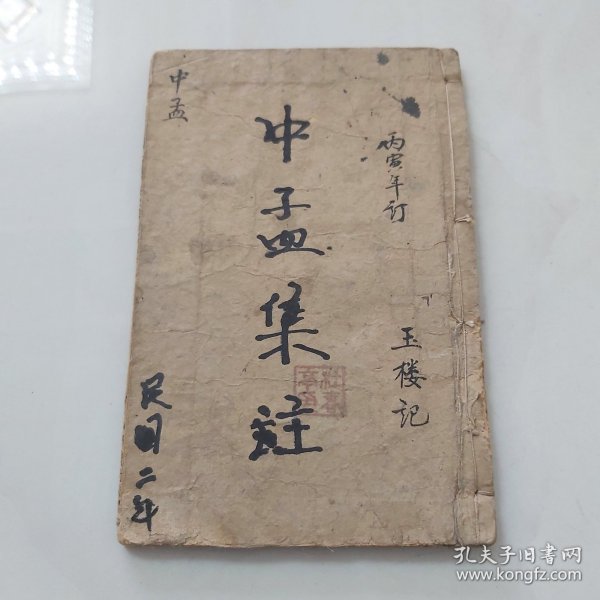 丙寅年订
玉楼记
中孟集註
中孟
民国二年
孔夫子旧书网
www.kongfz.com